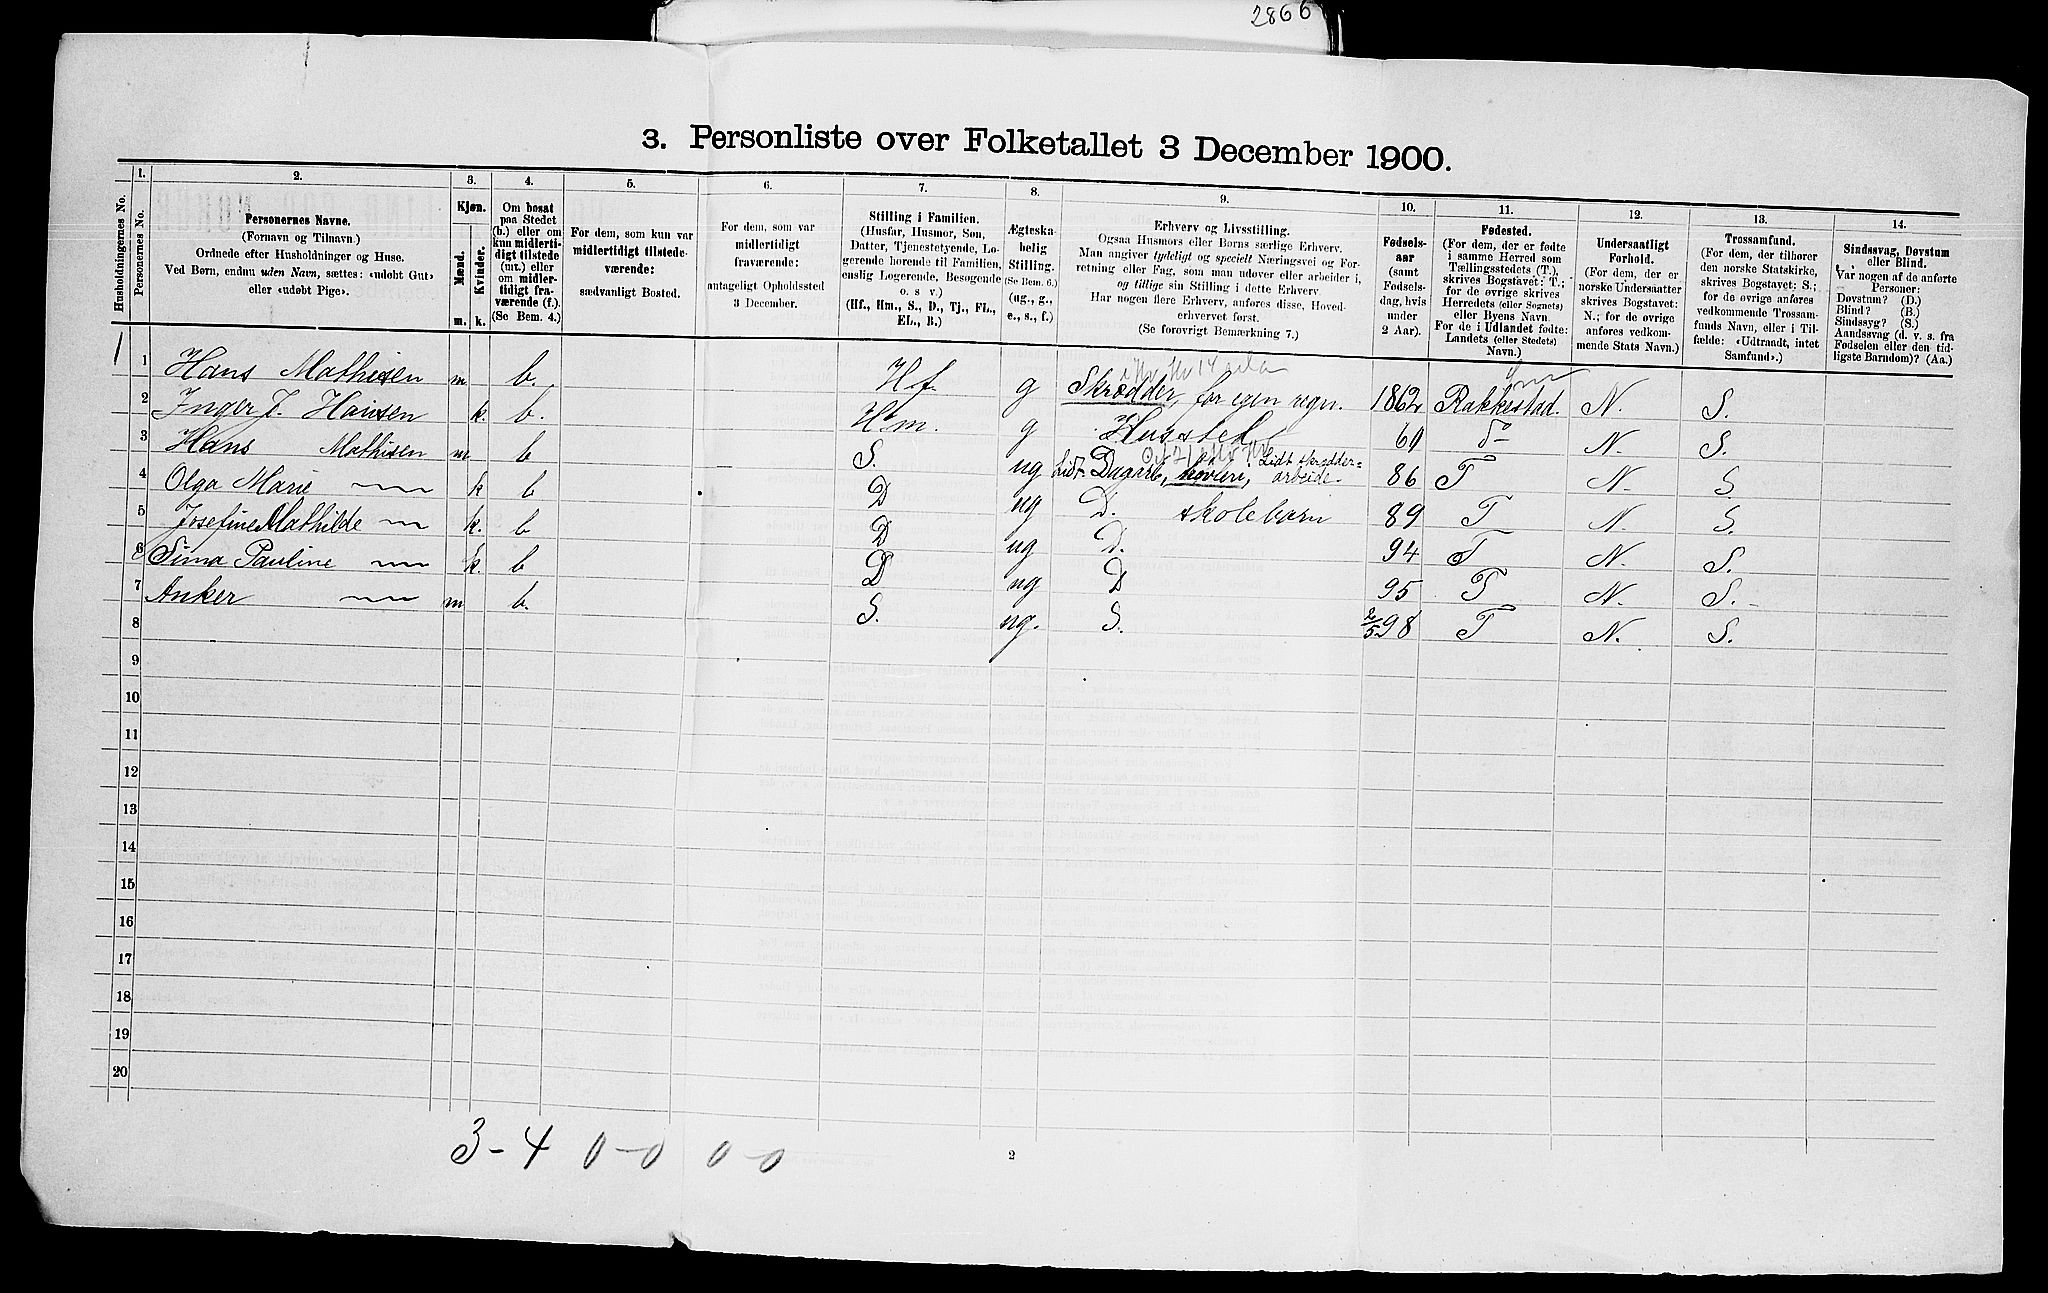 2866
3. Personliste over Folketallet 3 December 1900.
Husholdningernes No.
1.
Personernes No.
2.
Personernes Navne.
(Fornavn og Tilnavn.)
Ordnede efter Husholdninger og Huse.
Ved Børn, endnu uden Navn, sættes: «udøbt Gut»
eller «udøbt Pige».
3.
Kjøn.
Mænd.
Kvinder.
m. k.
4.
Om bosat
paa Stedet
(b.) eller om
kun midlerti-
digt tilstede
(mt.) eller
om midler-
tidigt fra-
værende (f.).
(Se Bem. 4.)
5.
For dem, som kun var
midlertidigt tilstede-
værende:
sædvanligt Bosted.
6.
For dem, som var
midlertidigt
fraværende:
antageligt Opholdssted
3 December.
7.
Stilling i Familien.
(Husfar, Husmor, Søn,
Datter, Tjenestetyende, Lo-
gerende hørende til Familien,
enslig Logerende, Besøgende
o. s v.)
(Hf., Hm., S., D., Tj., FL.,
EL., B.)
8.
Ægteska-
belig
Stilling.
(Se Bem. 6.)
(ug., g.,
e., s., f.)
9.
Erhverv og Livsstilling.
Ogsaa Husmors eller Børns særlige Erhverv.
Man angiver tydeligt og specielt Næringsvei og For-
retning eller Fag, som man udøver eller arbeider i,
og tillige sin Stilling i dette Erhverv.
Har nogen flere Erhverv, anføres disse, Hoved-
erhvervet først.
(Se forøvrigt Bemærkning 7.)
10.
Fødsels-
aar
(samt
Fødsels-
dag, hvis
under
2 Aar).
11.
Fødested.
(For dem, der er fødte
i samme Herred som
Tællingsstedets (T.),
skrives Bogstavet: T.;
for de øvrige skrives
Herredets (eller Sognets)
eller Byens Navn.
For de i Udlandet fødte:
Landets (eller Stedets)
Navn.)
12.
Undersaatligt
Forhold.
(For dem, der er
norske Undersaatter
skrives Bogstavet:
N.; for de øvrige
anføres vedkom-
mende Stats Navn.)
13.
Trossamfund.
(For dem, der tilhører
den norske Statskirke,
skrives Bogstavet: S.;
for de øvrige anføres
vedkommende Trossam-
funds Navn, eller i Til-
fælde: «Udtraadt, intet
Samfund».)
14.
Sindssvag, Døvstum
eller Blind.
Var nogen af de anførte
Personer:
Døvstum? (D.)
Blind? (B.)
Sindssyg? (S.)
Aandssvag (d. v. s. fra
Fødselen eller den tid-
ligste Barndom)? (Aa.)
1 1 Hans Mathisen m b. Hf. g Skrædder, for egen regn. 1862 Rakkestad. N. S.
2 Inger J. Hansen k. b. Hm. g Husstel 60 do N. S.
3 Hans Mathisen m b S. ug Lidt Dagarb, Lidt skrædder=
arbeide. 86 T N. S
4 Olga Marie — k b D ug D. skolebarn 89 T N. S.
5 Josefine Mathilde — k. b D ug D. 94 T N. S.
6 Sima Pauline — k. b D ug D 95 T N. S.
7 Anker — m b. S. ug. S. 2/5 98 T N. S.
8
9
10
11
12
13
14
15
16
17
18
19
20
3-4 0-0 0-0
2